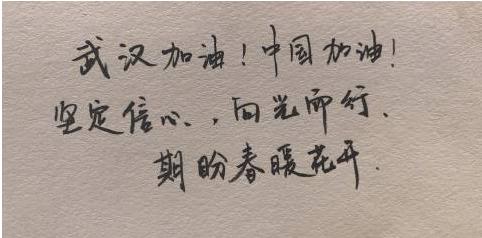 武汉加油！中国加油！
坚定信心，向光而行.
期盼春暖花开.